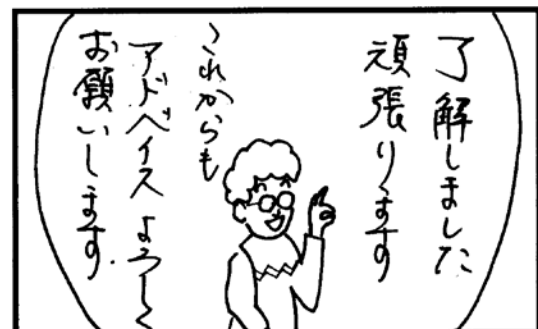 了解しました
頑張ります
これからも
アドベイスよろしく
お願いします.